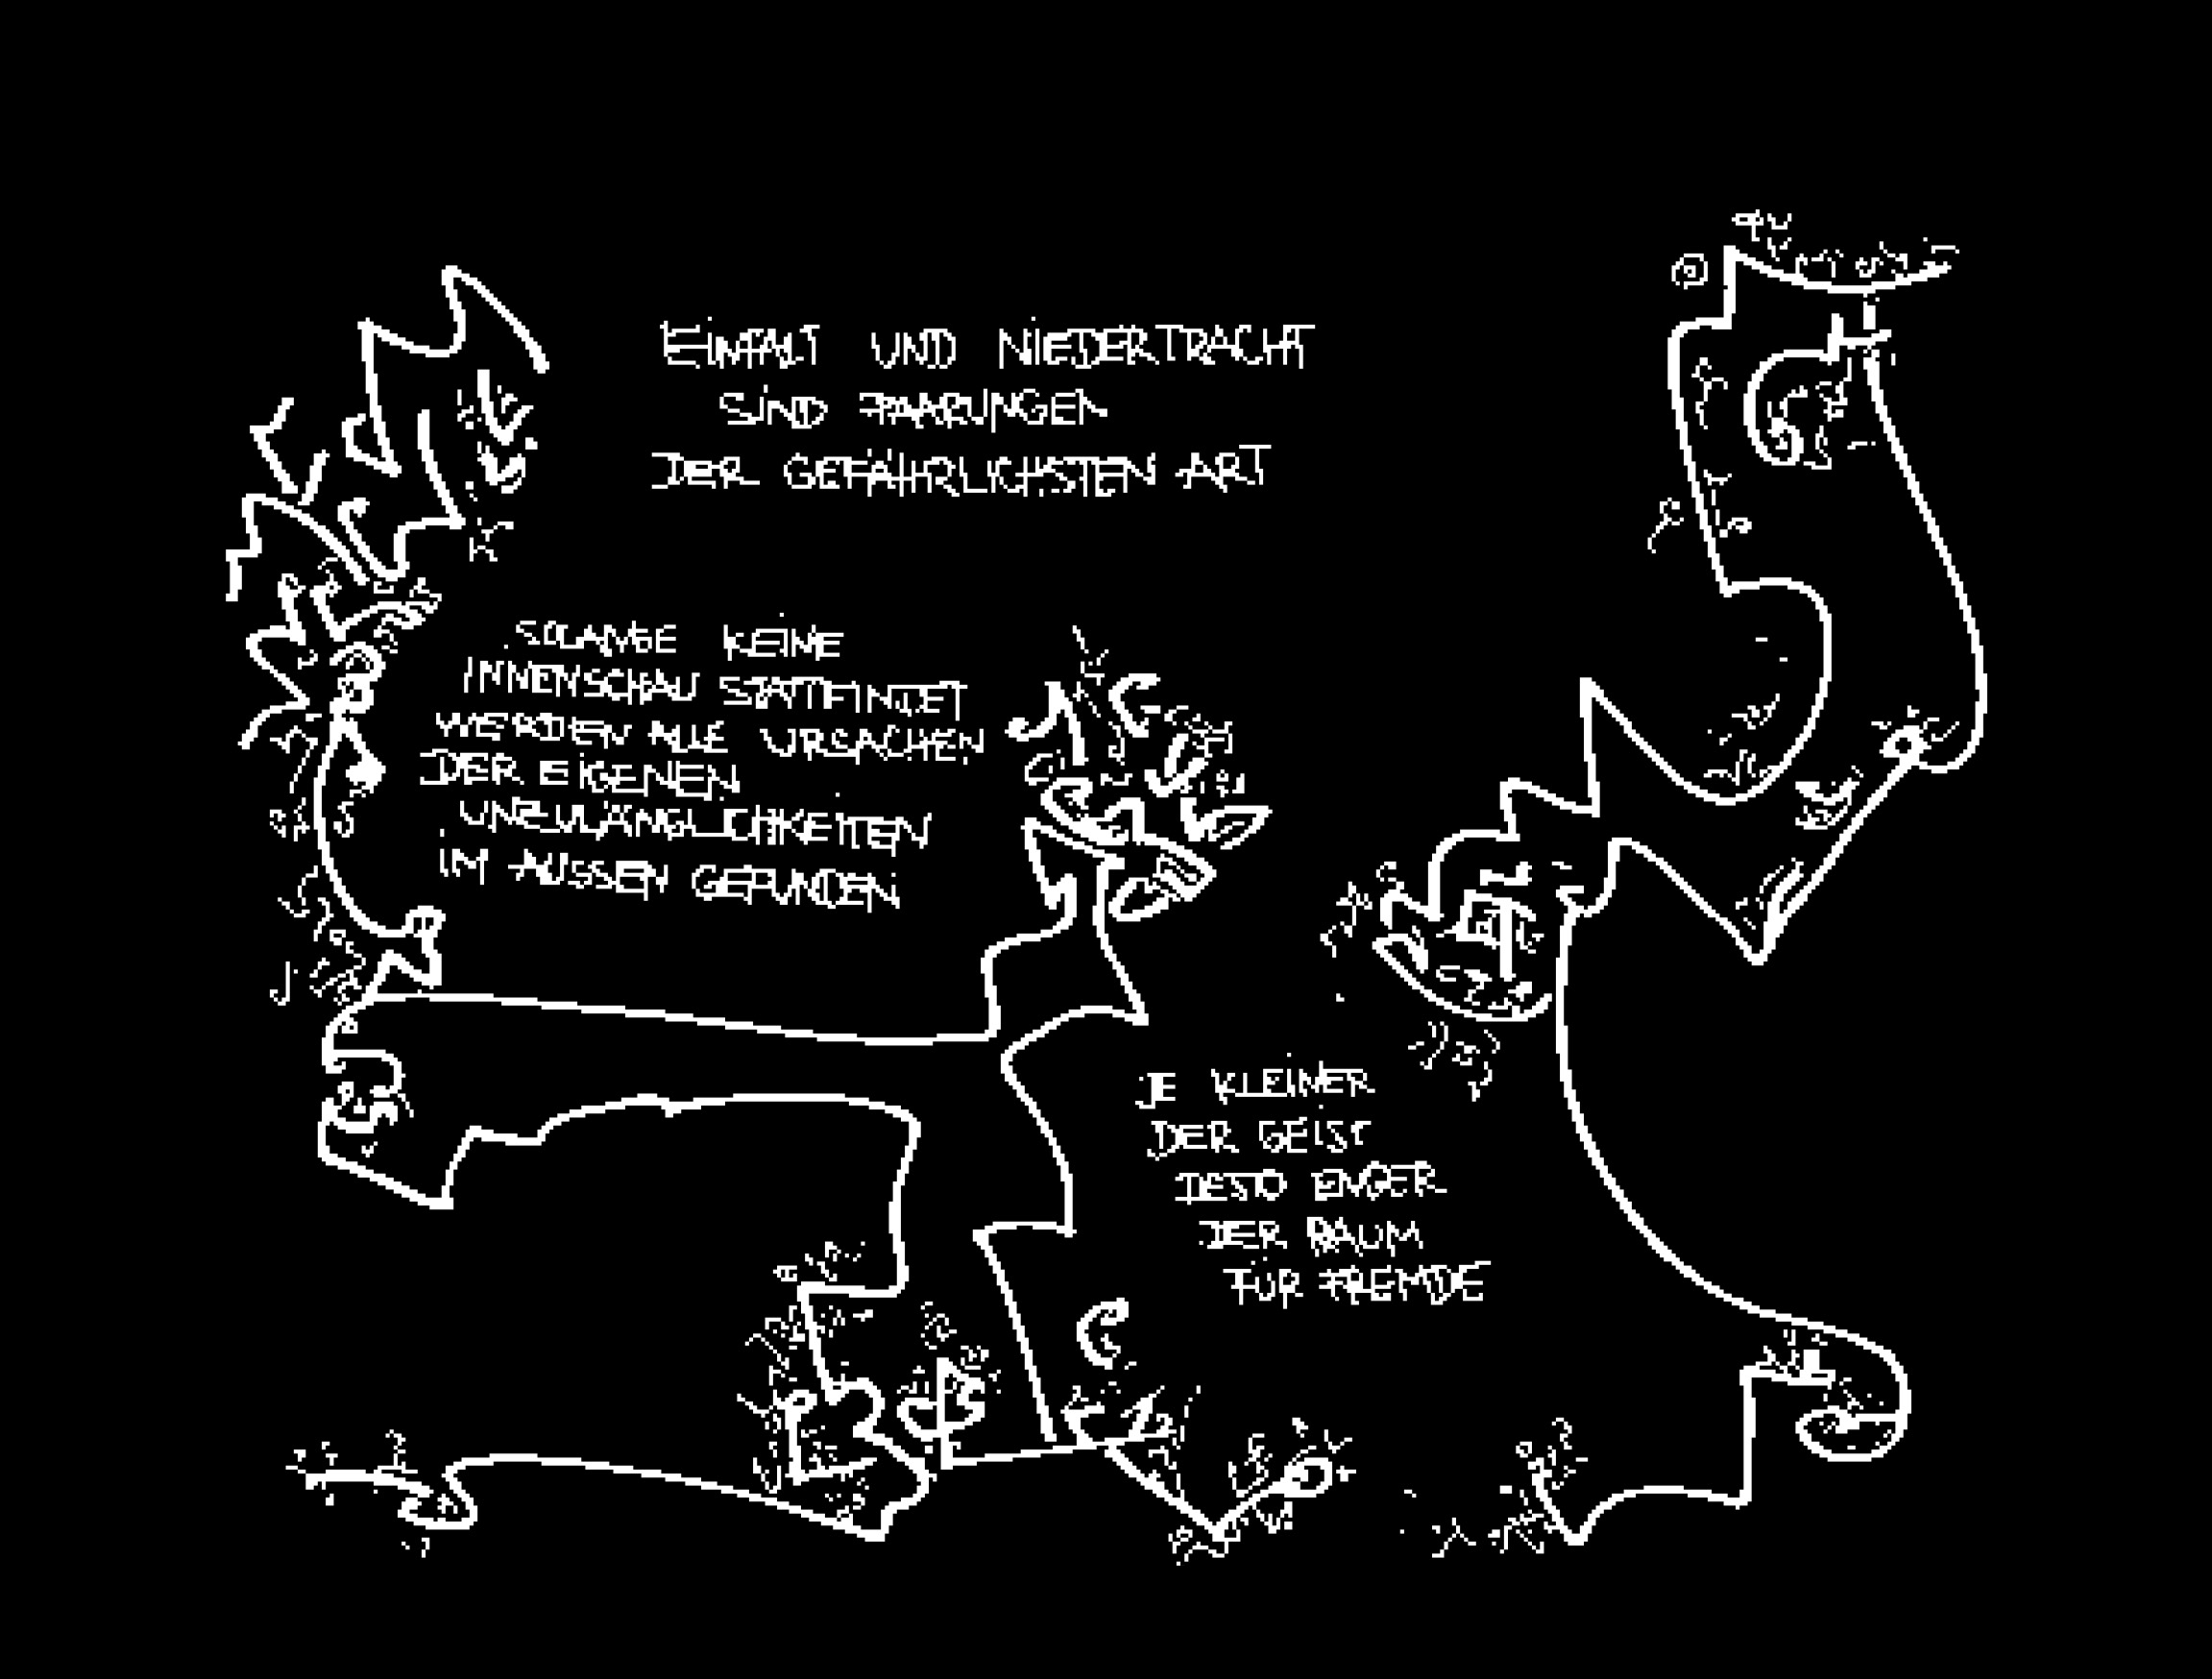 EiNFALT UND NiEDERTRACHT
SiND PAARUNGEN
DER GEFÄHRLICHSTEN ART
SOLANGE KEiNE
INNENSCHAU STATTFINDET
WERDEN ALLE URSACHEN
DER EiGENEN
UNZULÄNGLiCHKEiTEN
iM AUSSEN GEFUNDEN
JE KLEiNER
DER GEiST
DESTO ENGER
DER RAUM
FÜR FREMDE